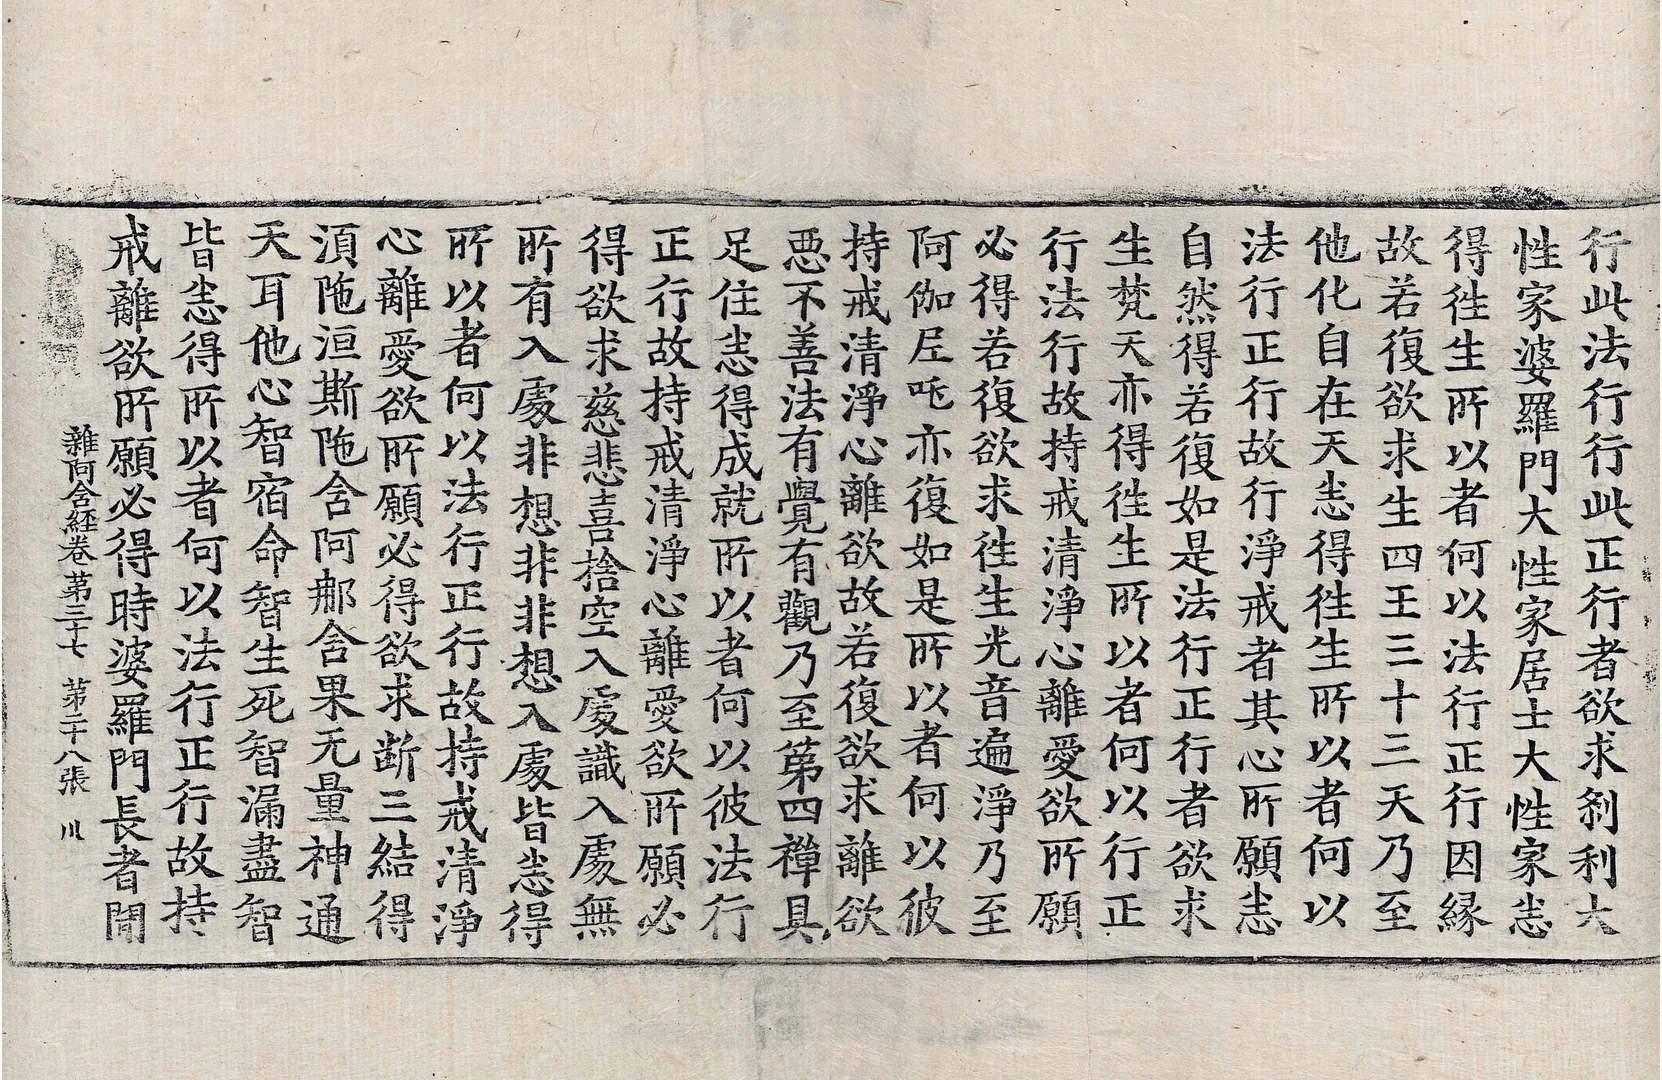 行此法行行此正行者欲求刹利大
性家婆羅門大性家居士大性家悉
得徃生所以者何以法行正行因緣
故若復欲求生四王三十三天乃至
他化自在天悉得徃生所以者何以
法行正行故行淨戒者其心所願悉
自然得若復如是法行正行者欲求
生梵天亦得徃生所以者何以行正
行法行故持戒清淨心離愛欲所願
必得若復欲求徃生光音遍淨乃至
阿伽尼吒亦復如是所以者何以彼
持戒清淨心離欲故若復欲求離欲
惡不善法有覺有觀乃至第四禪具
足住悉得成就所以者何以彼法行
正行故持戒清淨心離愛欲所願必
得欲求慈悲喜捨空入處識入處無
所有入處非想非非想入處皆悉得
所以者何以法行正行故持戒清淨
心離愛欲所願必得欲求断三結得
湏陁洹斯陁含阿那含果无量神通
天耳他心智宿命智生死智漏盡智
皆悉得所以者何以法行正行故持
戒離欲所願必得時婆羅門長者聞
雜阿含経卷第三十七 第二十八張 川